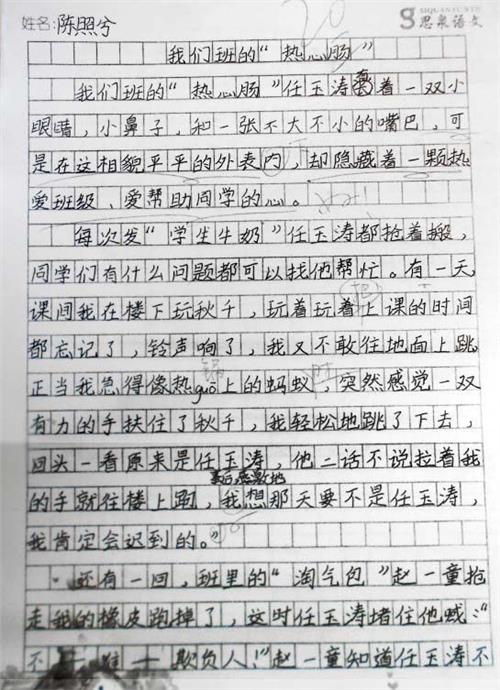 SIQUANYUWEN
姓名:陈照兮 思泉语文
20
我们班的“热心肠”
我们班的“热心肠”任玉涛着一双小
眼睛,小鼻子,和一张不大不小的嘴巴,可
是在这相貌平平的外表内,却隐藏着一颗热
爱班级、爱帮助同学的心。
每次发“学生牛奶”任玉涛都抢着搬,
同学们有什么问题都可以找他帮忙。有一天,
课间我在楼下玩秋千,玩着玩着把上课的时间
都忘记了,铃声响了,我又不敢往地面上跳
锅 时
正当我急得像热guō上的蚂蚁,突然感觉一双
有力的手扶住了秋千,我轻松地跳了下去,
回头一看原来是任玉涛,他二话不说拉着我
事后感激地
的手就往楼上跑,我想那天要不是任玉涛,
我肯定会迟到的。”
还有一回,班里的“淘气包”赵一童抢
走我的橡皮跑掉了,这时任玉涛堵住他喊:“
不一准一欺负人!”赵一童知道任玉涛不